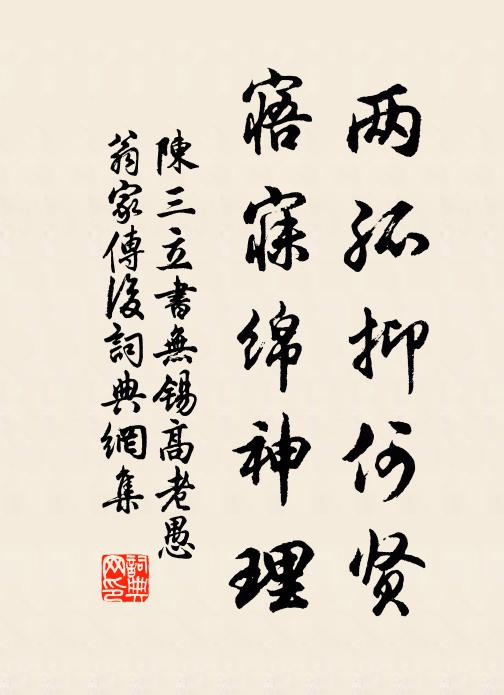 两孤抑何贤
寤寐绵神理
陳三立書無锡高老愚
翁家傳後詞典網集
詞典网印